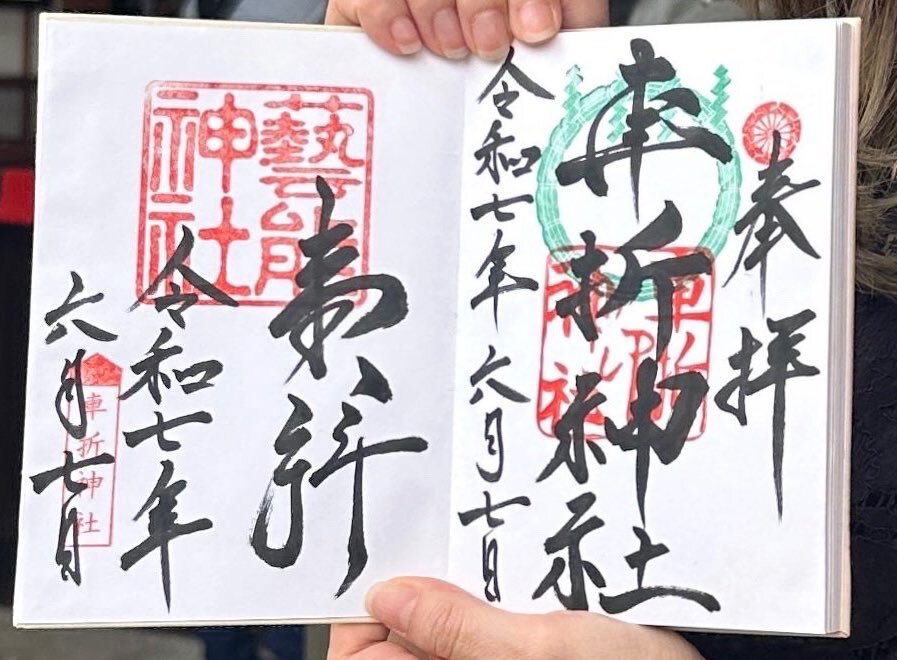 奉拝
車折神社
令和七年 六月七日
車折神社
奉拝
藝能神社
令和七年
六月七日
車折神社